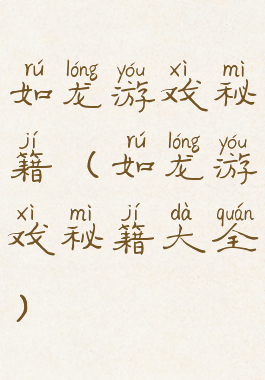 rú lóng yóu xì mì
如龙游戏秘
jí rú lóng yóu
籍(如龙游
xì mì jí dà quán
戏秘籍大全
)